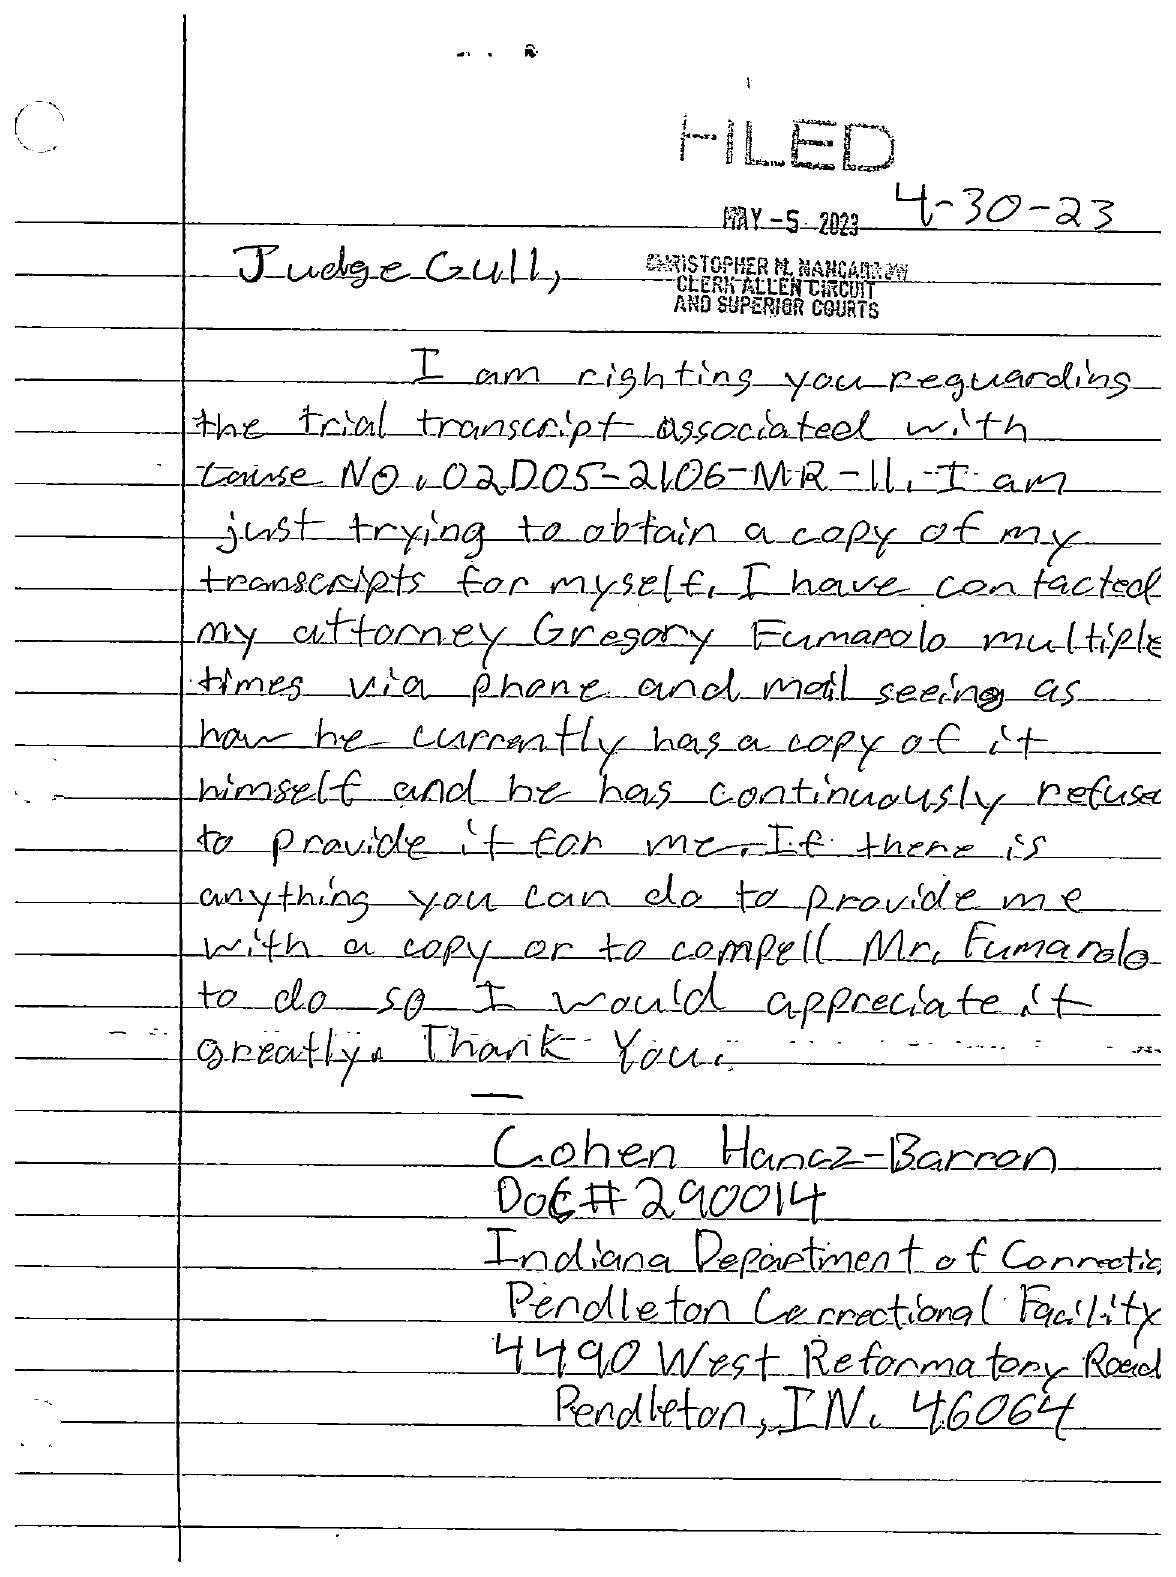 FILED
4-30-23
MAY -5 2023
Judge Gull,
CHRISTOPHER M. NANCARROW
CLERK ALLEN CIRCUIT
AND SUPERIOR COURTS
I am righting you reguarding
the trial transcript associated with
Cause No. 02D05-2106-MR-11. I am
just trying to obtain a copy of my
transcripts for myself. I have contacted
my attorney Gregory Fumarolo multiple
times via phone and mail seeing as
how he currently has a copy of it
himself and he has continuously refuse
to provide it for me. If there is
anything you can do to provide me
with a copy or to compell Mr. Fumarolo
to do so I would appreciate it
greatly. Thank You.
Cohen Hancz-Barron
DOC# 290014
Indiana Department of Correctio
Pendleton Correctional Facility
4490 West Reformatory Road
Pendleton, IN. 46064